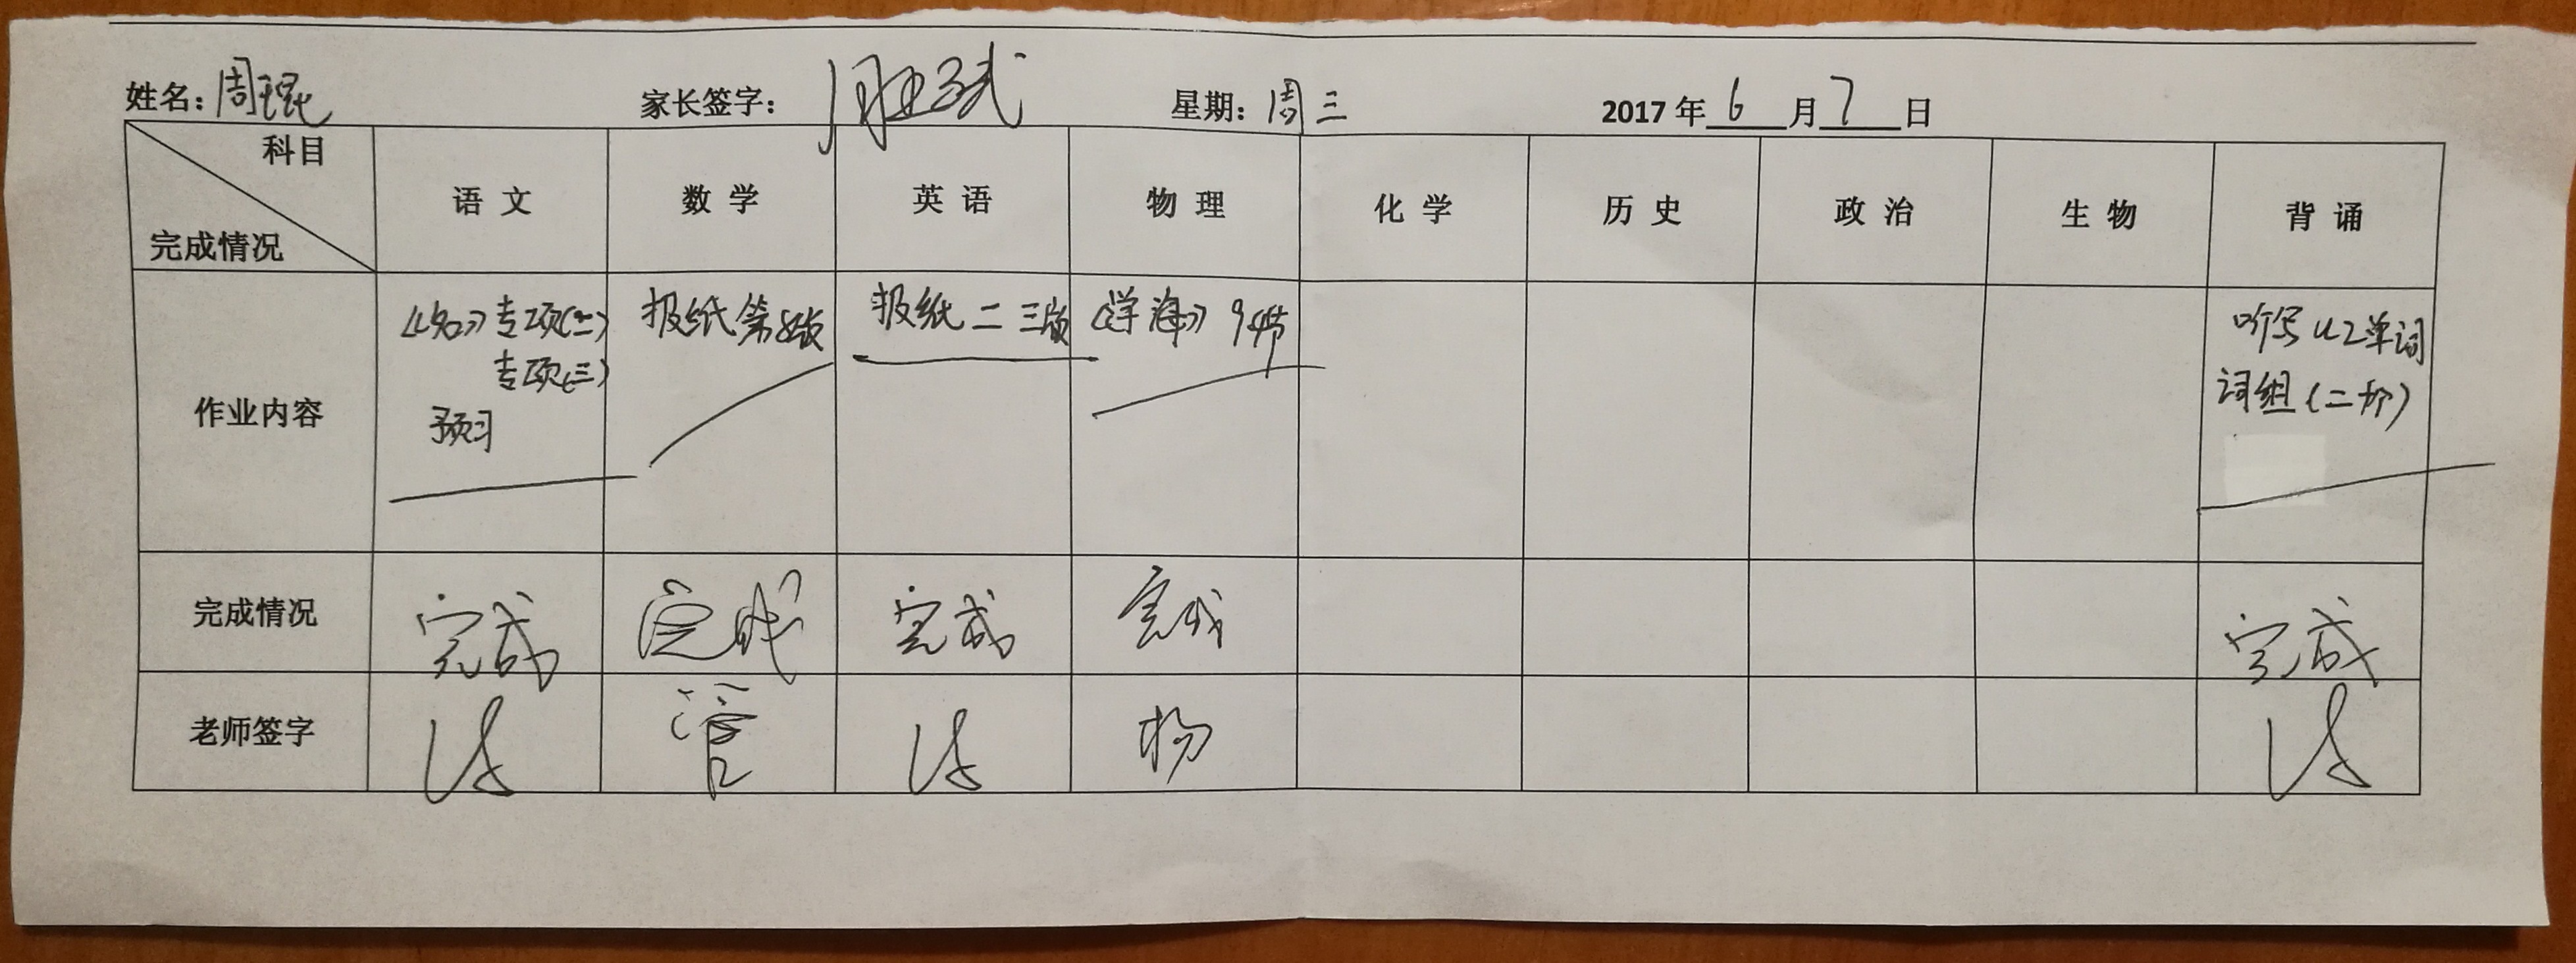 姓名：周琨 家长签字： 星期：周三 2017年6月7日
科目 语文 数学 英语 物理 化学 历史 政治 生物 背诵
完成情况
作业内容 《名》专项(二) 报纸第 版 报纸二三版 《洋海》9.4节 听写U2单词
专项(三) 词组(二 )
预习
完成情况 完成 完成 完成 完成 完成
老师签字 管 杨